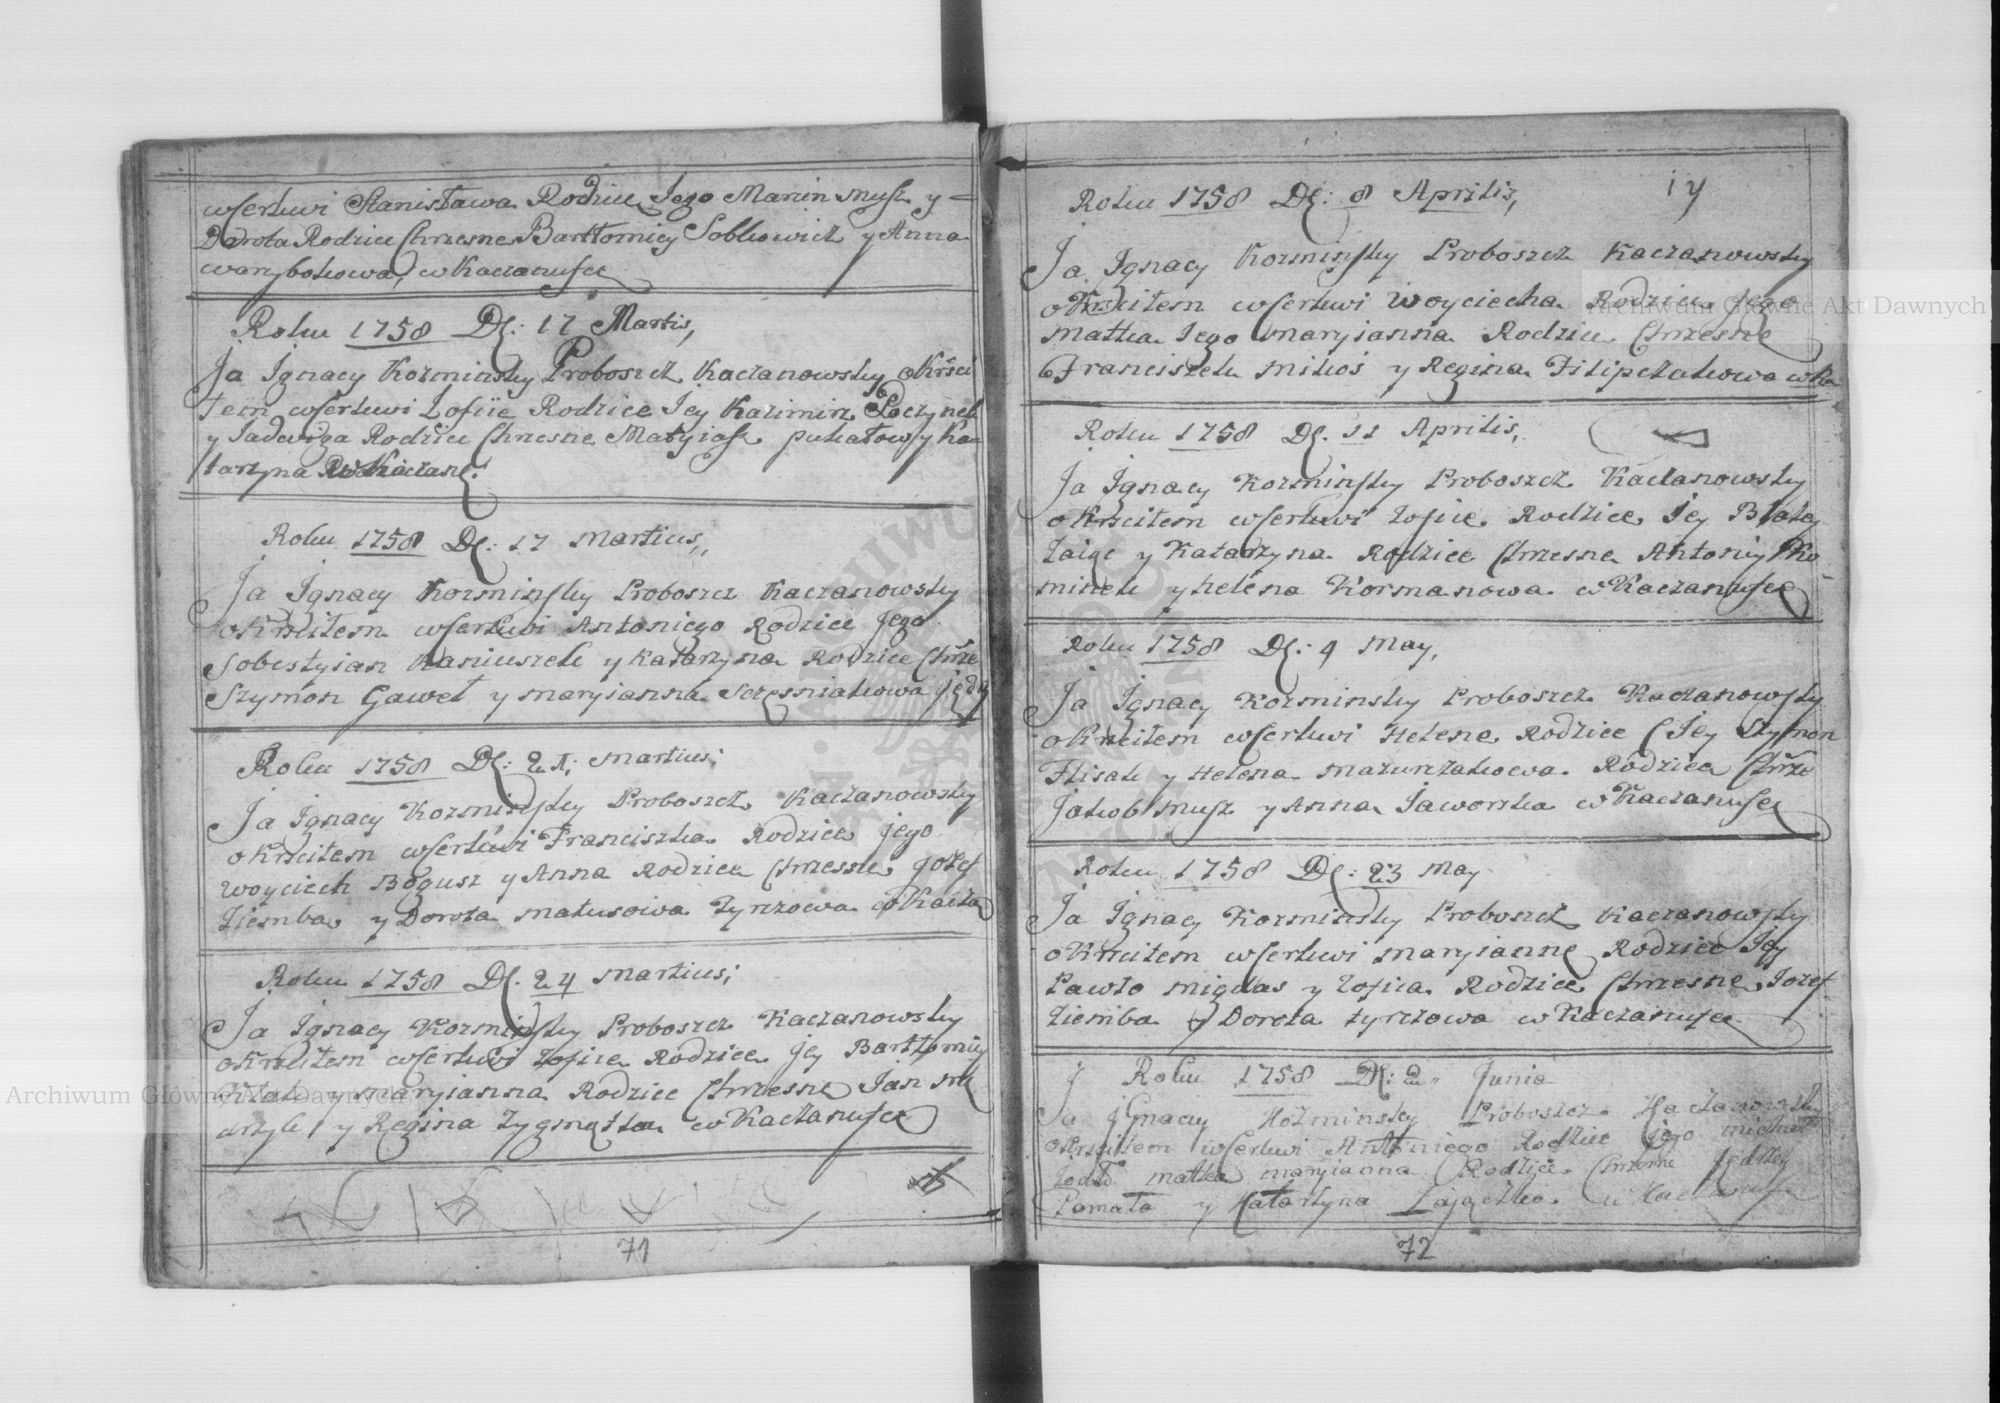 wserkwi Stanisława Rodzice Jego Marcin Musz y =
Dorota Rodzice Chrzesne Bartłomiey Sobkowicz y Anna
warybokowa, w Kaczanusce
Roku 1758 D: 17 Martis,
Ja Ignacy Kozminsky Proboszcz Kaczanowsky okrści
łem wserkwi Zofiie Rodzice Jey Kazimirz Poczynek
y Jadwiga Rodzice Chrzesne Matyiasz pukałow y Ka
tarzyna
Roku 1758 D: 17 Martius,,
Ja Ignacy Kozminsky Proboszcz Kaczanowsky
okrzciłem wserkwi Antoniego Rodzice Jego
Sobestyian Kaniuszek y Katarzyna Rodzice Chrze
Szymon Gaweł y maryianna Sczesniakowa
Roku 1758 D: 21; Martius;
Ja Ignacy Kozminsky Proboszcz Kaczanowsky
okrzciłem wserkwi Franciszka Rodzice Jego
Woyciech Bogusz y Anna Rodzice Chrzesne Jozef
Ziemba y Dorota matusowa Tyrczowa w Kacza
Roku 1758 D: 24 Martius;
Ja Ignacy Kozminsky Proboszcz Kaczanowsky
okrzciłem wserkwi Zofiie Rodzice Jey Bartłomiey
y maryianna Rodzice Chrzesne Jan
y Regina Zygmątka w Kaczanusce
71
Roku 1758 D: 8 Aprilis,
Ja Ignacy Kozminsky Proboszcz Kaczanowsky
okrzciłem wserkwi Woyciecha Rodzice Jego
matka Jego maryianna Rodzice Chrzesne
Franciszek mikoś y Regina Filipczakowa w Ka
Roku 1758 D: 11 Aprilis,
Ja Ignacy Kozminsky Proboszcz Kaczanowsky
okrzciłem wserkwi Zofiie Rodzice Jey Błażey
Zaiąc y Katarzyna Rodzice Chrzesne Antoniy Ko
minek y helena Kormanowa w Kaczanusce
Roku 1758 D: 4 May,
Ja Ignacy Kozminsky Proboszcz Kaczanowsky
okrzciłem wserkwi Helene Rodzice Jey Szymon
Flisak y Helena mazurczakowa Rodzice Chrze
Jakob musz y Anna Jaworska w Kaczanusce
Roku 1758 D: 23 May
Ja Ignacy Kozminsky Proboszcz Kaczanowsky
okrzciłem wserkwi maryianne Rodzice Jey
Pawło migdas y Zofiia Rodzice Chrzesne Jozef
Ziemba y Dorota tyrczowa w Kaczanusce
Roku 1758 D: 2,, Junia
Ja Ignacy Kozminsky Proboszcz Kaczanowsky
okrzciłem wserkwi Anttoniego Rodzice Jego michałł
matka maryianna Rodzice Chrzesne
y Katarzyna Zajączka w Kaczanusce
72
Archiwum Główne Akt Dawnych
Archiwum Główne Akt Dawnych